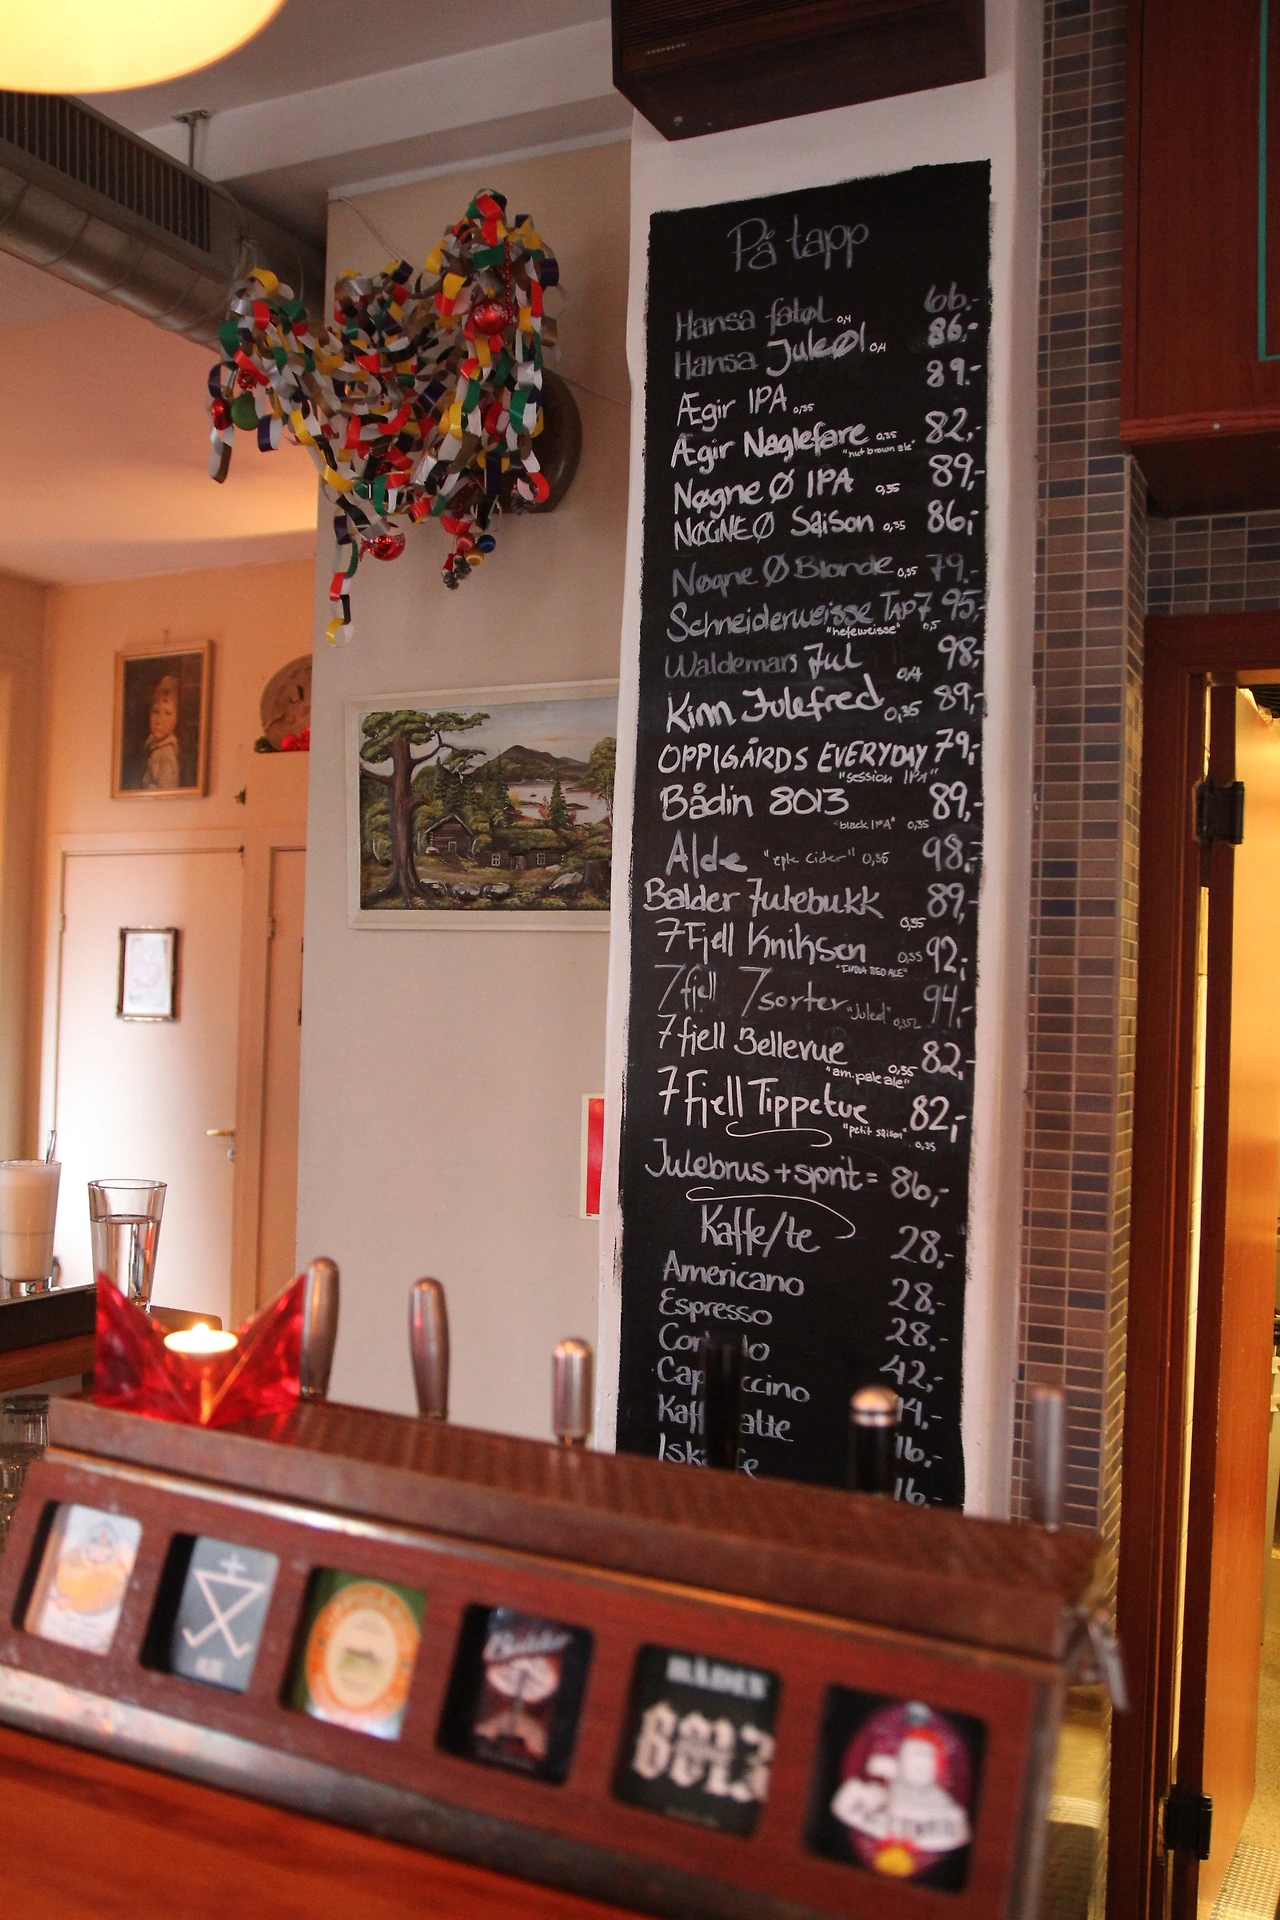 På tapp
Hansa fatøl 0,4 66.-
Hansa Juleøl 0,4 86,-
Ægir IPA 0,35 89.-
Ægir Naglefare 0,35 82,-
"nut brown ale"
Nøgne Ø IPA 0,35 89,-
NØGNE Ø Saison 0,35 86,-
Nøgne Ø Blonde 0,35 79.-
Schneiderweisse TAP7 95,-
"hefeweisse" 0,5
Waldemars Jul 0,4 98,-
Kinn Julefred 0,35 89,-
OPPIGÅRDS EVERYDAY 79,-
"session IPA"
Bådin 8013 89,-
"black IPA" 0,35
Alde "eple cider" 0,35 98,-
Balder Julebukk 0,35 89,-
7 Fjell Kniksen 0,35 92,-
"INDIA RED ALE"
7 fjell 7 sorter "Juleøl" 0,35L 94,-
7 fjell Bellevue 0,35 82,-
"am. pale ale"
7 Fjell Tippetue 82,-
"petit saison" 0,35
Julebrus + sprit = 86,-
Kaffe/te 28,-
Americano 28.-
Espresso 28.-
42,-
16,-
16,-
BÅDIN
8013